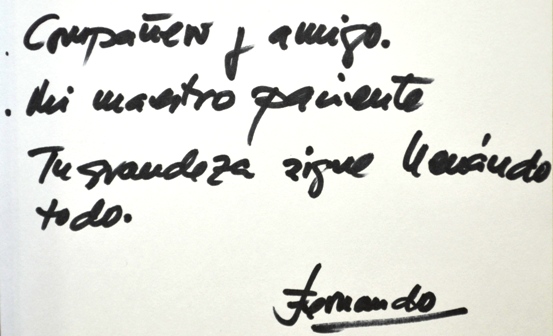 Compañero y amigo.
. Mi maestro paciente
Tu grandeza sigue llenándo
todo.
Fernando